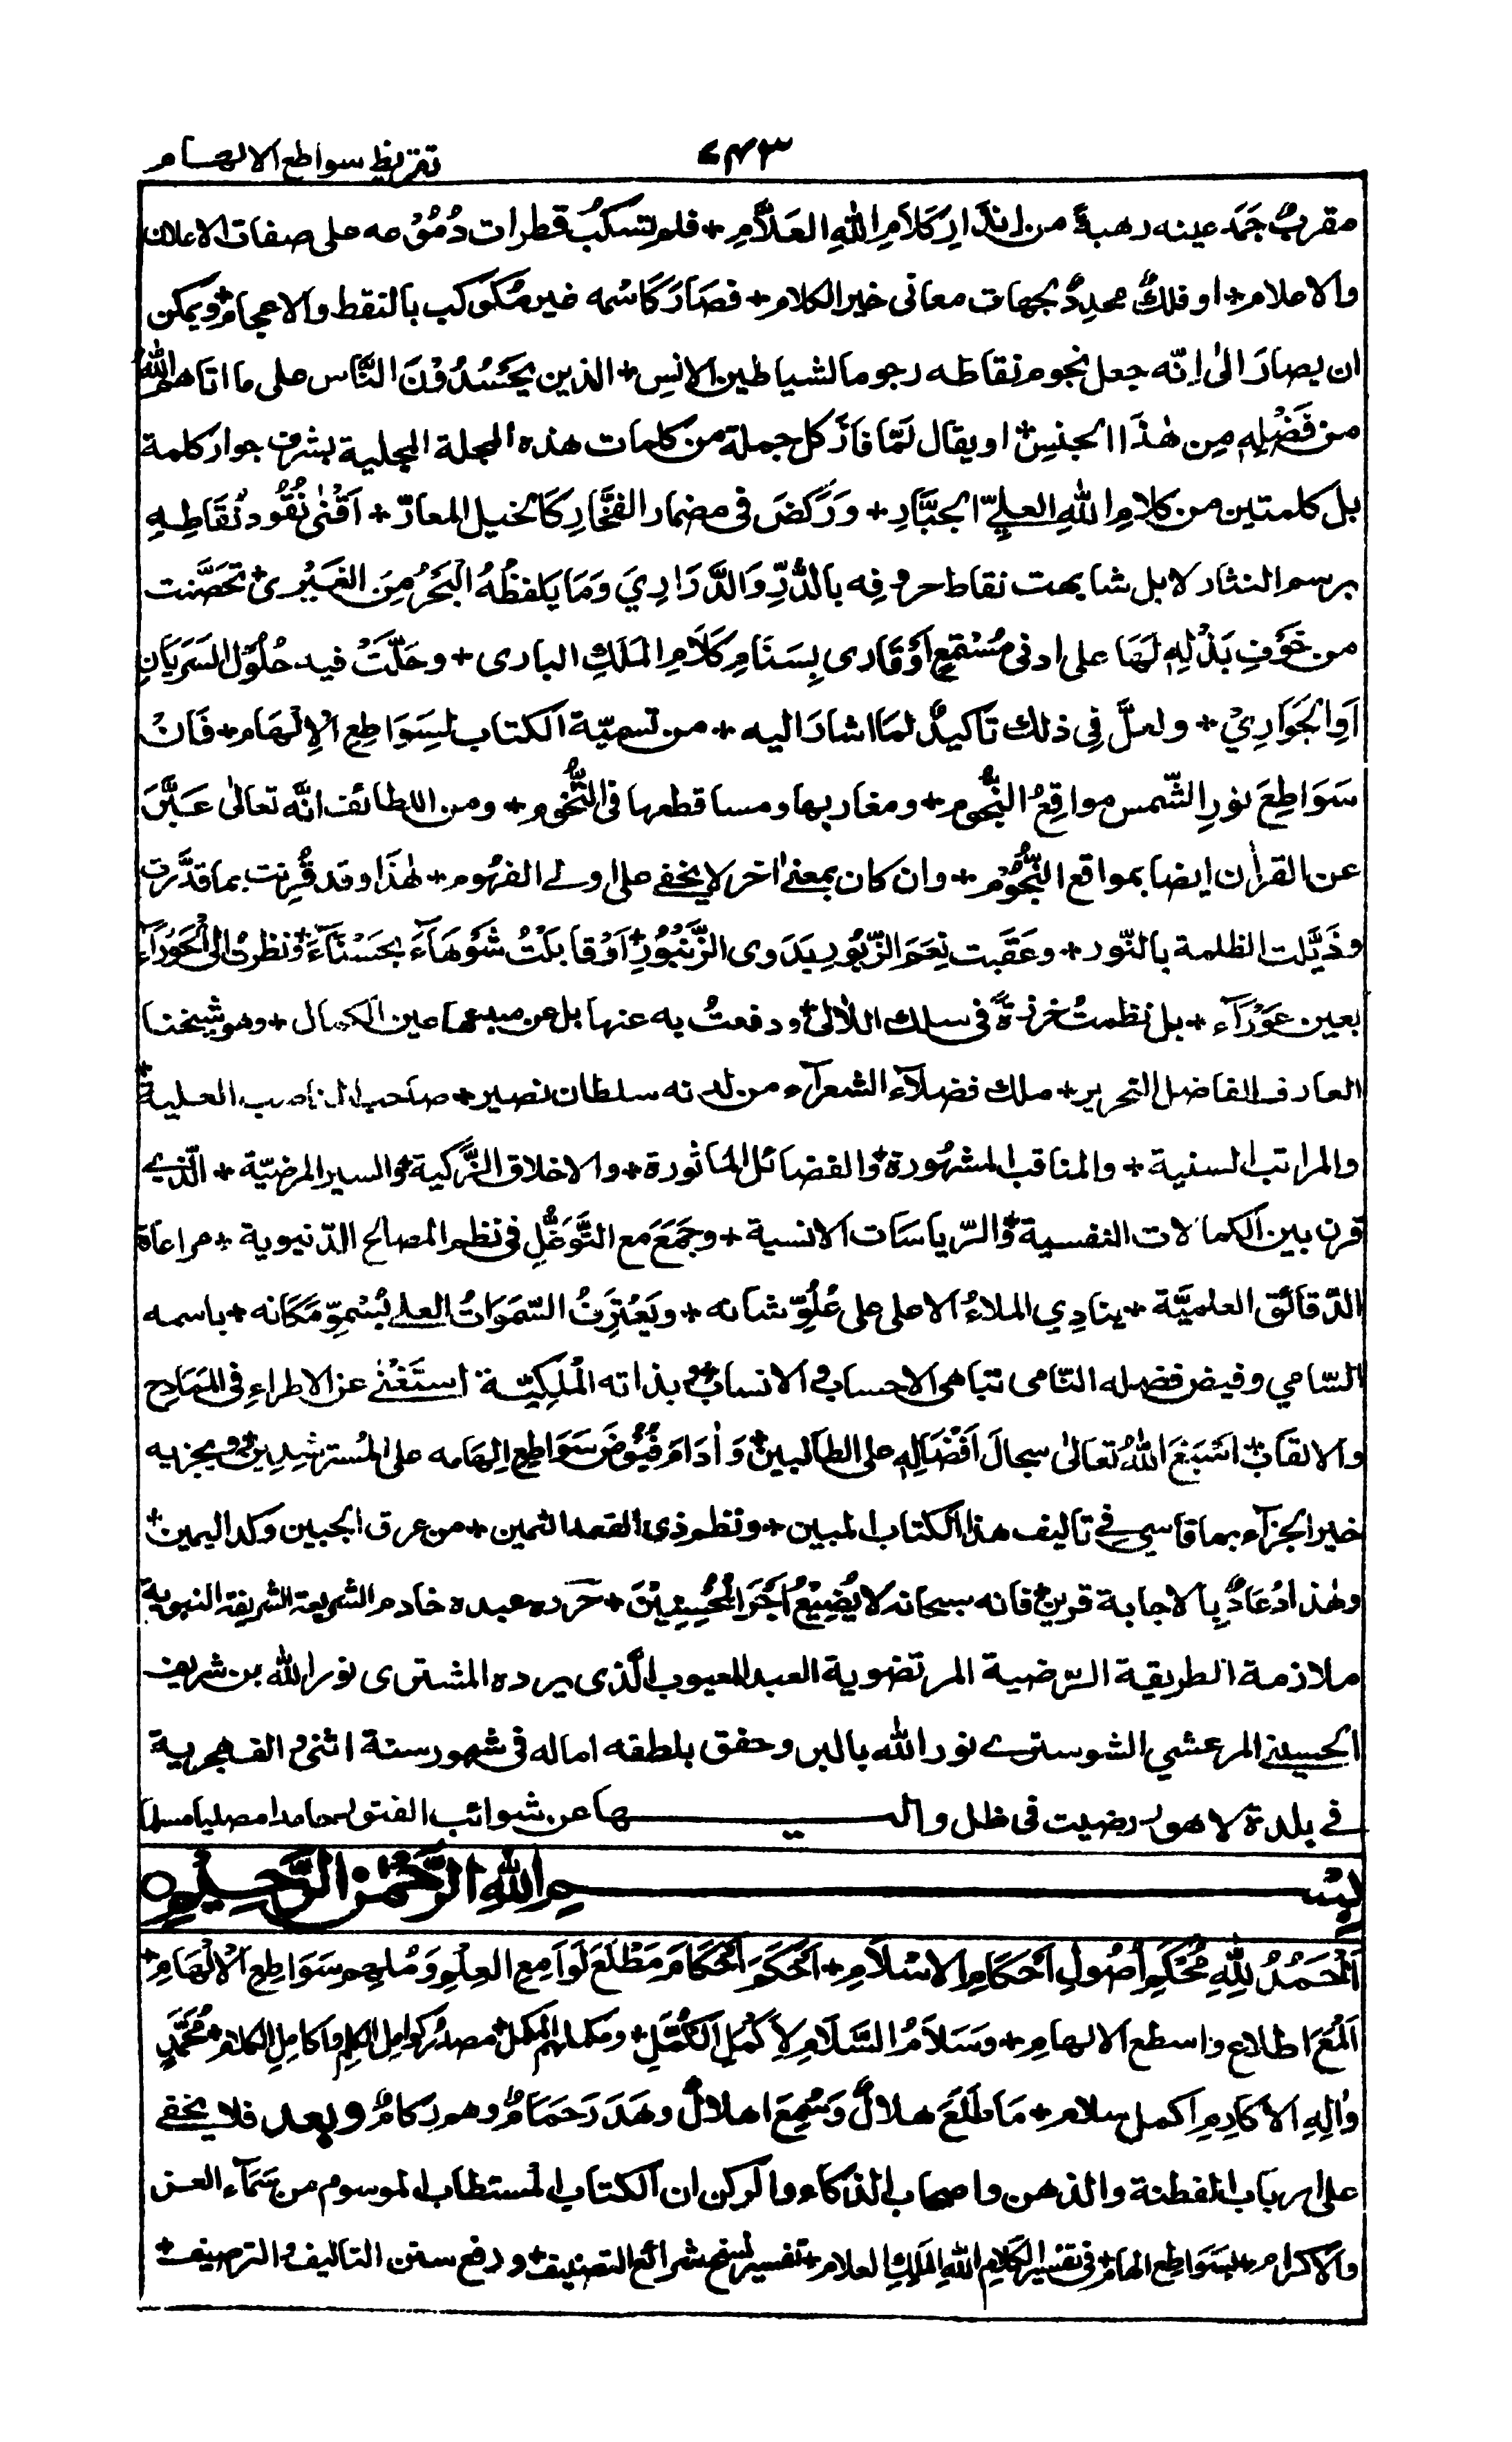 تقريظ سواطع الالهام
٧٤٣
مقربٌ جَمَد عينه رهبةً من انذارِ كَلَامِ اللهِ العَلَّامِ + فلم تسكبْ قطرات دُمُوْعه على صفات الاعلان
والاعلام + او فلكٌ محدِدٌ لجهات معانى خير الكلام + فصَارَ كَاسْمه غير مكوكب بالنقط والاعجام + ويمكن
ان يصارَ الىٰ اِنّه جعل نجوم نقاطه رجوما لشياطين الانسِ + الذين يَحْسُدُوْنَ النَّاس على ما اتاهم اللهُ
من فَضْلِهٖ مِن هٰذَا الجنسِ + او يقال لمّا فَازَ كل جملة من كلمات هذه المجلة الجلية بشرف جوار كلمة
بل كلمتين من كلامِ اللهِ العليّ الجبَّارِ + وَرَكَضَ فى مضمار الفَخَّارِ كَالخيل المعارّ + اَفْنٰى نُقُوْد نُقَاطِهٖ
برسم النثار لا بل شابهت نقاط حروفِه بالدُّرِّ وَالدَّرَارِيَ وَمَا يَلفظُهُ الْبَحْرُ مِنَ الغَيْرِى + تحصَّنت
من خَوْفِ بَذْلِهٖ لَهَا على ادنى مُسْتَمِعٍ اَوْ قَارى بِسَنَامِ كَلَامِ المَلَكِ البارى + وحَلَّتْ فيه حُلُوْلَ السَرَيَانِ
اَوِ الْجَوَارِيْ + ولعلَّ فِي ذلك تَاكيدٌ لمَا اشارَ اليه + من تسميّة الكتاب لسِوَاطِعِ الْاِلْهَام + فَانْ
سَوَاطِعَ نورِ الشّمس مواقِعُ النُّجُوم + ومغاربها ومساقطها فى التُّخُوم + ومن اللطائف انَّه تعالىٰ عَبَّرَ
عن القراٰن ايضا بمواقع النُّجُوْم + وان كان بمعنےٰ اٰخر لا يخفے على اولے الفهُوم + هٰذَا وقد قُرِنت بما قدَّرت
وذَيَّلت الظلمة بالنّور + وعَقَّبت نِعَمَ الزّبُور بِدَوى الزَّنْبُوْرِ + اَوْ قابَلْتُ شَوْهَاءَ بحَسْنَاءَ + ونظرتُ الى الْحَوْرَآءِ
بعين عَوْرَآء + بل نظمتُ خرزةً فى سلك اللاٰلى + ودفعتُ به عنها بل عن مبدعها عين الكمال + وهو شيخنا
العارف الفاضل النحرير + ملك فضلآء الشعرآء من لدنه سلطان نصير + صاحب المناصب العلية +
والمراتب السنية + والمناقب المشهُورة + والفضائل الماثورة + والاخلاق الزَّكية + والسير المرضيّة + الّذے
قرن بين الكمالات النفسية + والرّياسَات الانسية + وجَمَعَ مع التَّوَغُّلِ فى نظم المصالح الدّنيوية + مراعاة
الدّقائق العلميَّة + ينادِي الملاءُ الاعلى على عُلُوّ شانه + ويَعْتَرِفُ السّمَوَاتُ العلے بُسْموّ مَكَانه + باسمه
السّامي وفيض فضله النّامى تباهى الاحساب والانساب + وبذاته الملكيّة استَغْنٰے عن الاطراءِ فى المَمَادِح
والالقاب + اَسْبَغَ اللهُ تعالىٰ سجالَ اَفْضَالِهٖ على الطالبين + وَاَدَامَ فُيُوْضَ سَوَاطِع اِلهَامه على المُسترشِدِين + ويجزيه
خير الجزآء بما قاسى فے تاليف هذا الكتاب المبين + ونظم ذى العقد الثمين + من عرق الجبين وكد اليمين +
وهٰذا دُعَاءٌ بِالاجابة قرين + فانه سبحانه لَا يُضِيْعُ اَجْرَ الْمُحْسِنِيْنَ + حرره عبده خادم الشريعة الشريفة النبوية
ملازمة الطريقة الرّضية المرتضوية العبد المعيوب الّذى يرده المشترى نور الله بن شريف
الحسينے المرعشي الشوسترے نور الله بالبر وحفق بلطفه اماله فى شهور سنة اثنى و الف هجرية
فے بلدة لاهور رضيت فى ظل واليها عن شوائب الفتور حامدا مصليا مسلما
بِسْمِ اللهِ الرَّحْمٰنِ الرَّحِيْمِ
اَلْحَمْدُ لِلّٰهِ مُحْكِمِ اُصُولِ اَحْكَامِ الاسْلَامِ + اَحْكَمَ اَحْكَامَ مَطْلَعِ لَوَامِعِ العِلْمِ وَمُلهِم سَوَاطِعِ الْاِلْهَامِ +
اَلْمَعَ اطلاع واسطع الالهامِ + وَسَلَامُ السَّلَامِ لِاَكْمَلِ الكُمَّلِ + ومكملهم المكمل + مصدر كوامِل الكلمِ واكامِلِ الكلامِ + مُحَمَّدٍ
وَاٰلِهِ الاَكَارِمِ اكمل سلام + مَا طَلَعَ هلالٌ وَسُمِعَ اهلالٌ وهَدَرَ حَمَامٌ وهمر ركامٌ وبعد فلا يخفے
علىٰ ارباب الفطنة والذهن واصحاب الذكاء والركن ان الكتاب المستطاب الموسوم من سَمَآء العز
والاكرام + بسَوَاطِع الهام + فى تفسير كلامِ اللهِ المَلِكِ العلام + تفسير نسخ شرائع التصنيف + ورفع سنن التاليف والترصيف +